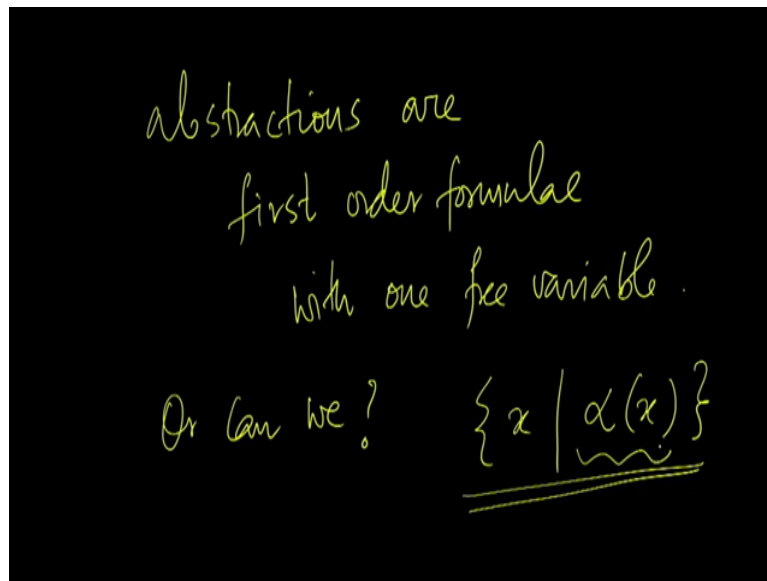 abstractions are
first order formulae
with one free variable.
Or can we? { x | α(x) }